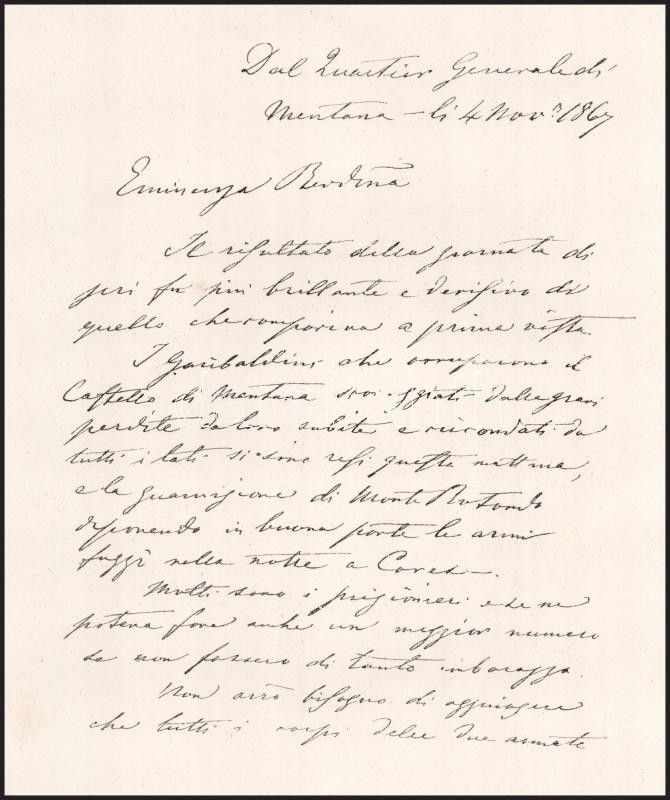 Dal Quartier Generale di
Mentana - li 4 Nov.e 1867
Eminenza Revdma
Il risultato della giornata di
jeri fu più brillante e decisivo di
quello che compariva a prima vista.
I Garibaldini che occupavano il
Castello di Mentana scoraggiati dalle gravi
perdite da loro subite e circondati da
tutti i lati si sono resi questa mattina,
e la guarnigione di Monte Rotondo
deponendo in buona parte le armi
fuggì nella notte a Corese.
Molti sono i prigionieri e se ne
poteva fare anche un maggior numero
se non fossero di tanto imbarazzo.
Non avrò bisogno di aggiugnere
che tutti i corpi delle due armate